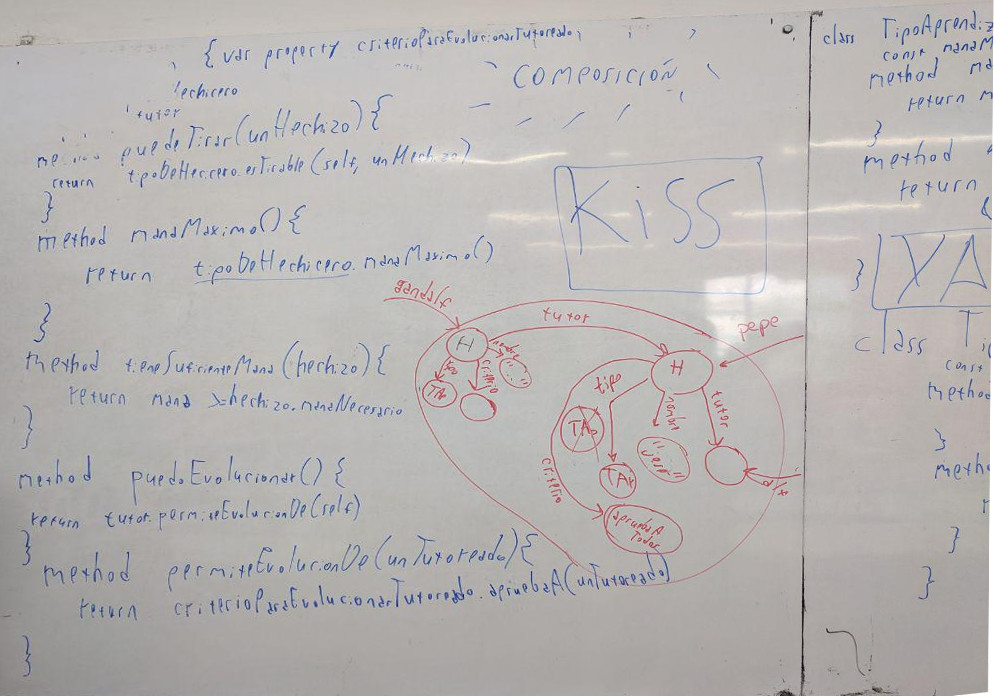 { var property criterioParaEvolucionarTutoreado,
hechicero
tutor
puedeTirar(unHechizo){
return tipoDeHechicero.esTirable(self, unHechizo)
}
method manaMaximo(){
return tipoDeHechicero.manaMaximo()
}
}
method tieneSuficienteMana(hechizo){
return mana >= hechizo.manaNecesario
}
method puedoEvolucionar() {
return tutor.permiteEvolucionDe(self)
}
method permiteEvolucionDe(unTutoreado){
return criterioParaEvolucionarTutoreado.apruebaA(unTutoreado)
}
COMPOSICIÓN
KiSS
gandalf
tutor
pepe
H
nombre
tipo
criterio
TAp
H
tipo
nombre
tutor
TAp
TA
criterio
apruebaA
Todos
class TipoAprendiz
const manaM
method ma
return m
}
method
return
}
YA
class Ti
const
method
}
meth
}
}